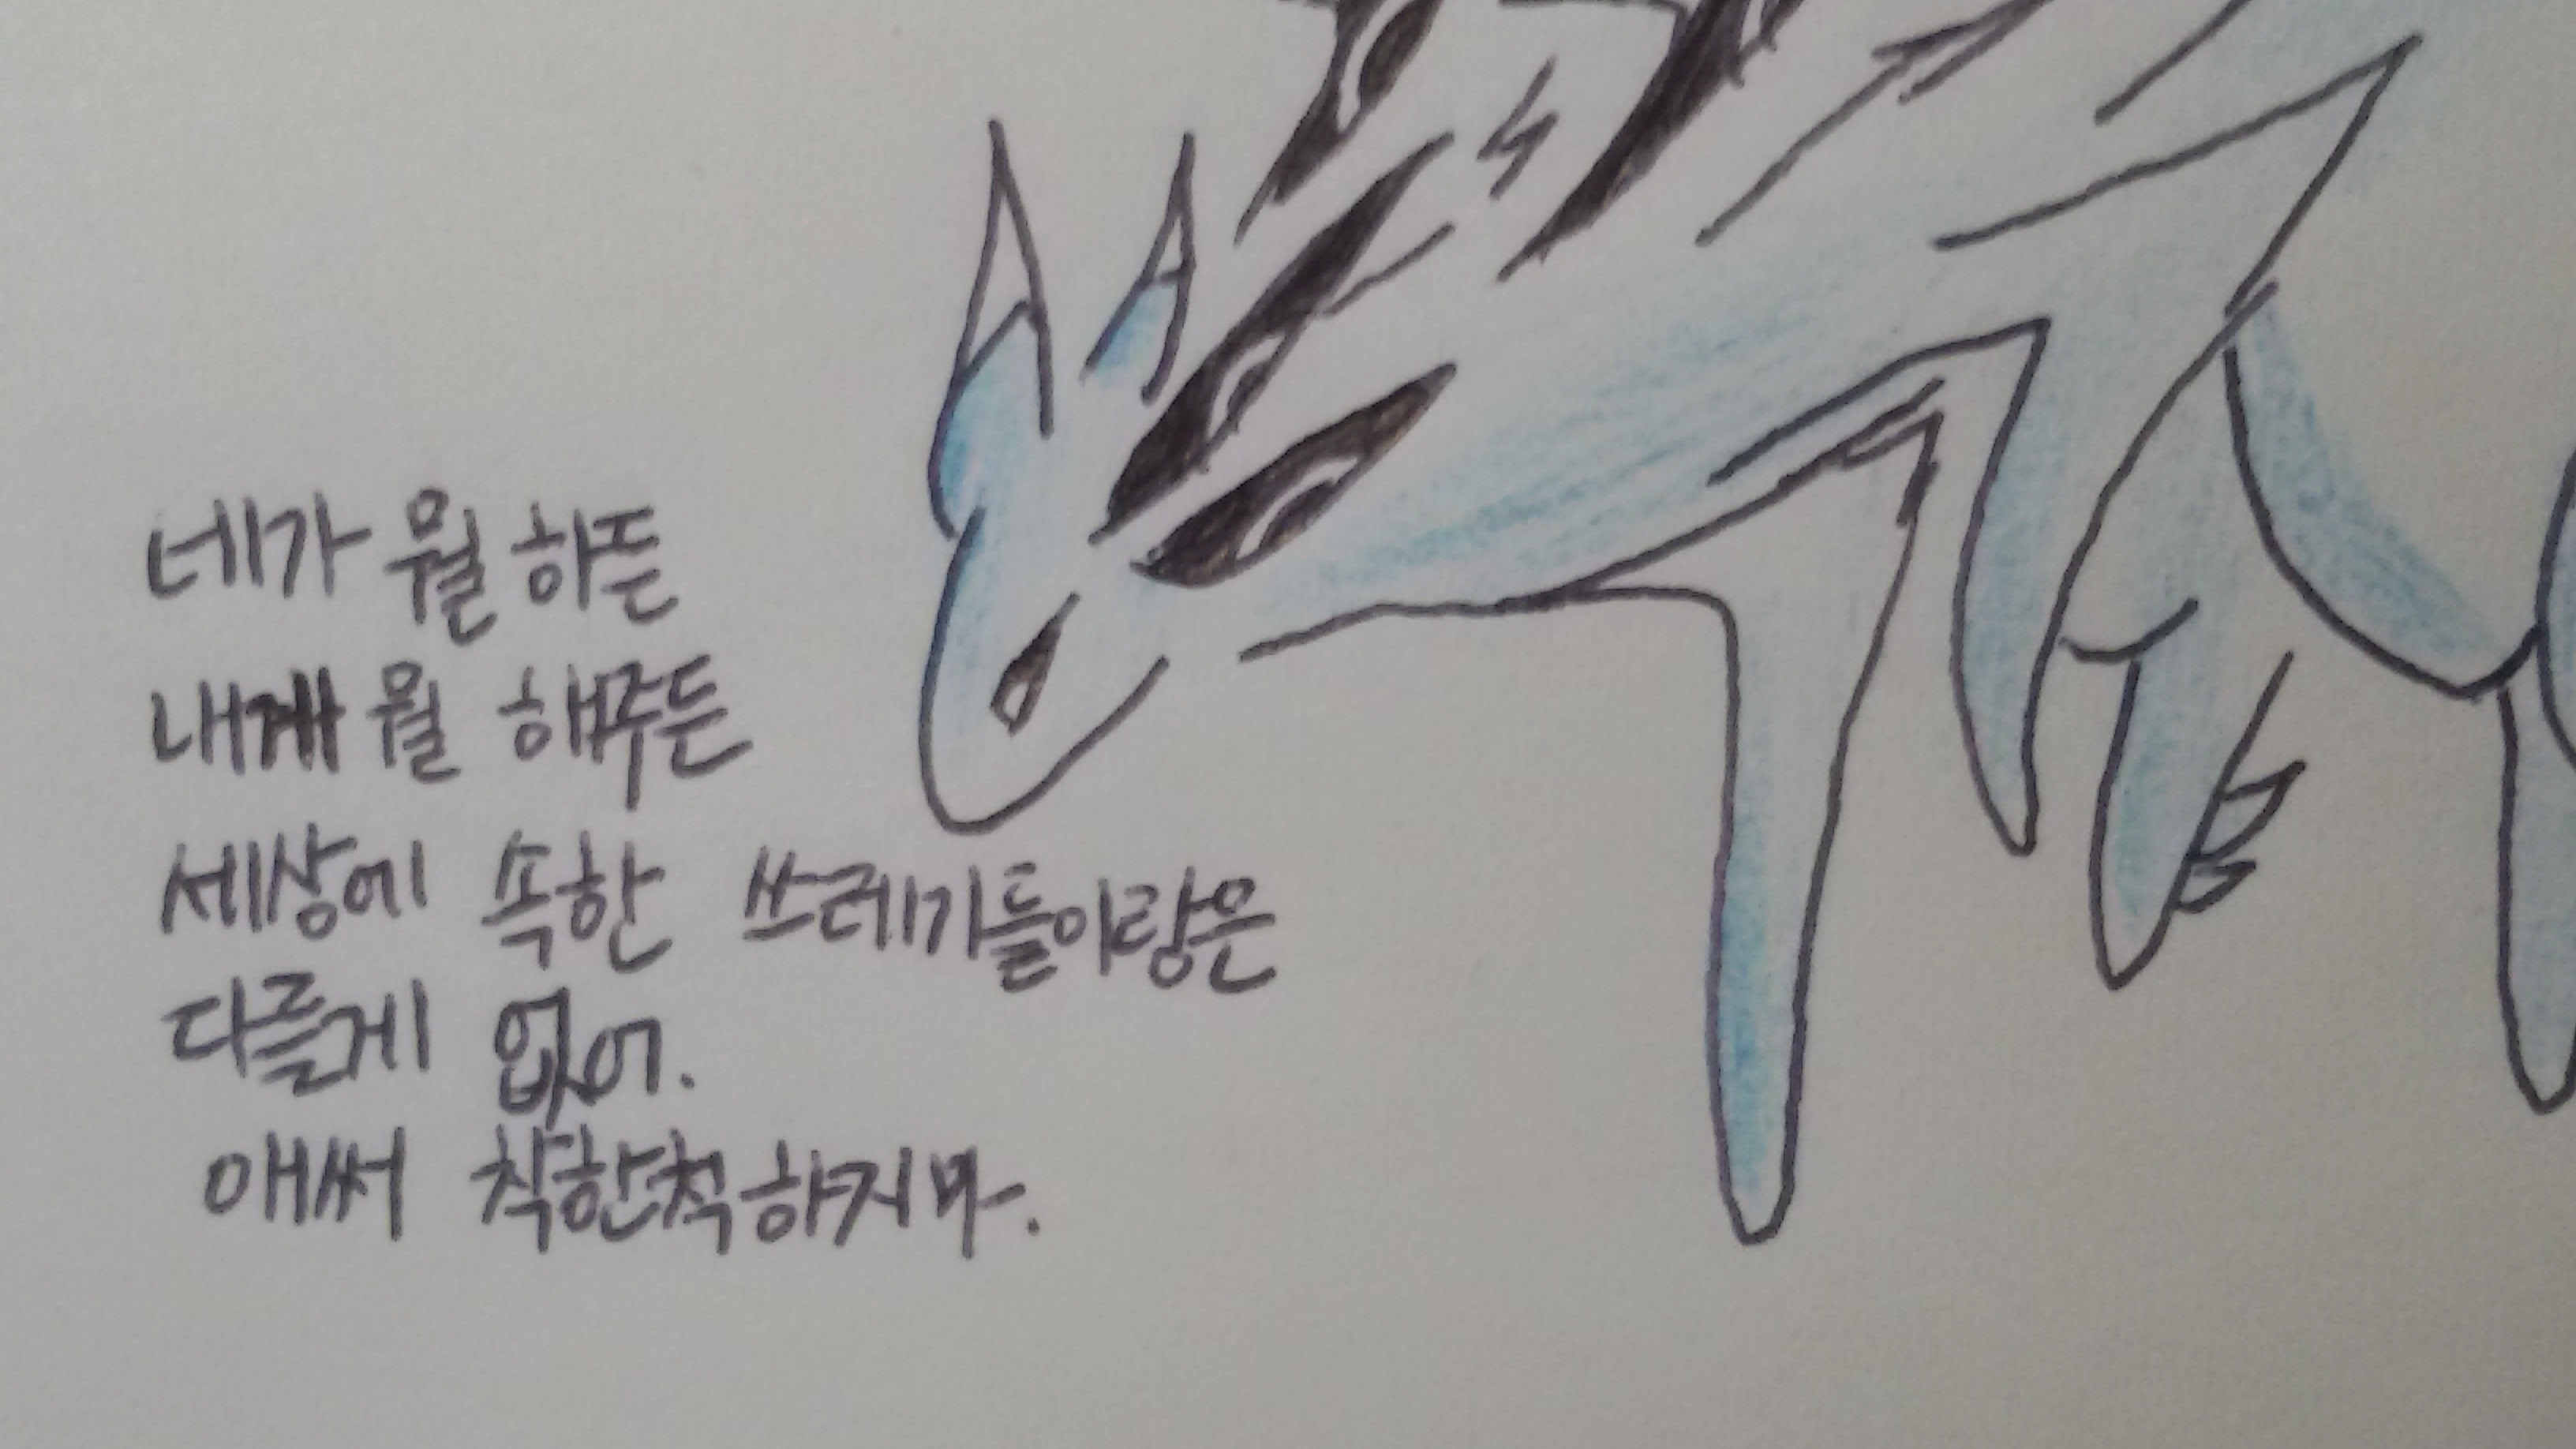 네가 월 하든
내게 월 해주든
세상에 속한 쓰레기들이랑은
다를게 없어.
애써 착한척하지마.